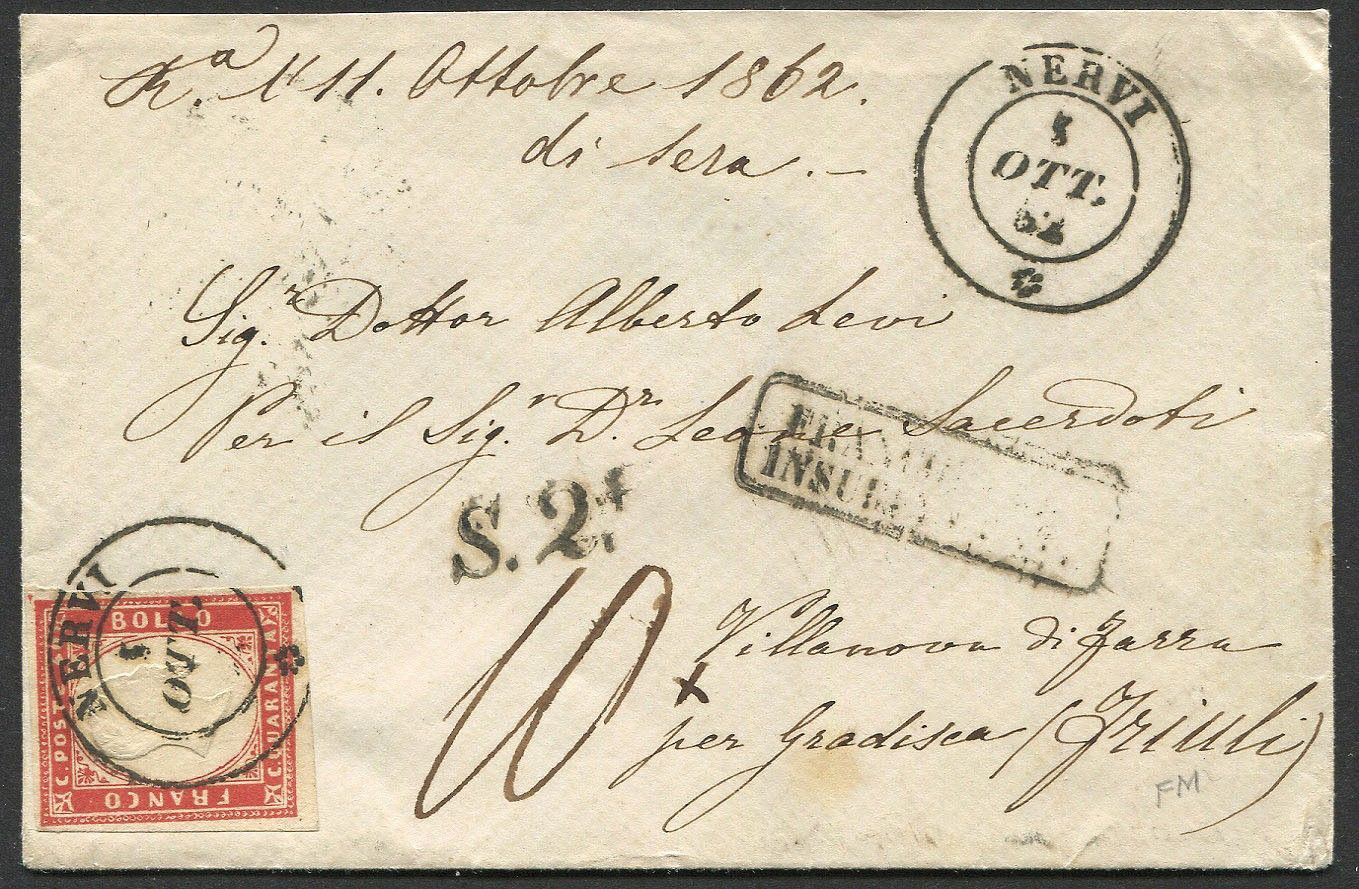 R.a l'11. Ottobre 1862.
di sera. -
NERVI
8
OTT.
62
Sig.r Dottor Alberto Levi
Per il Sig.r D.r Leone Sacerdoti
FRANCO
S. 2.
10
Villanova di Farra
per Gradisca (Friuli)
FM
NERVI
8
OTT.
BOLLO
C. POST
C. QUARANTA
FRANCO